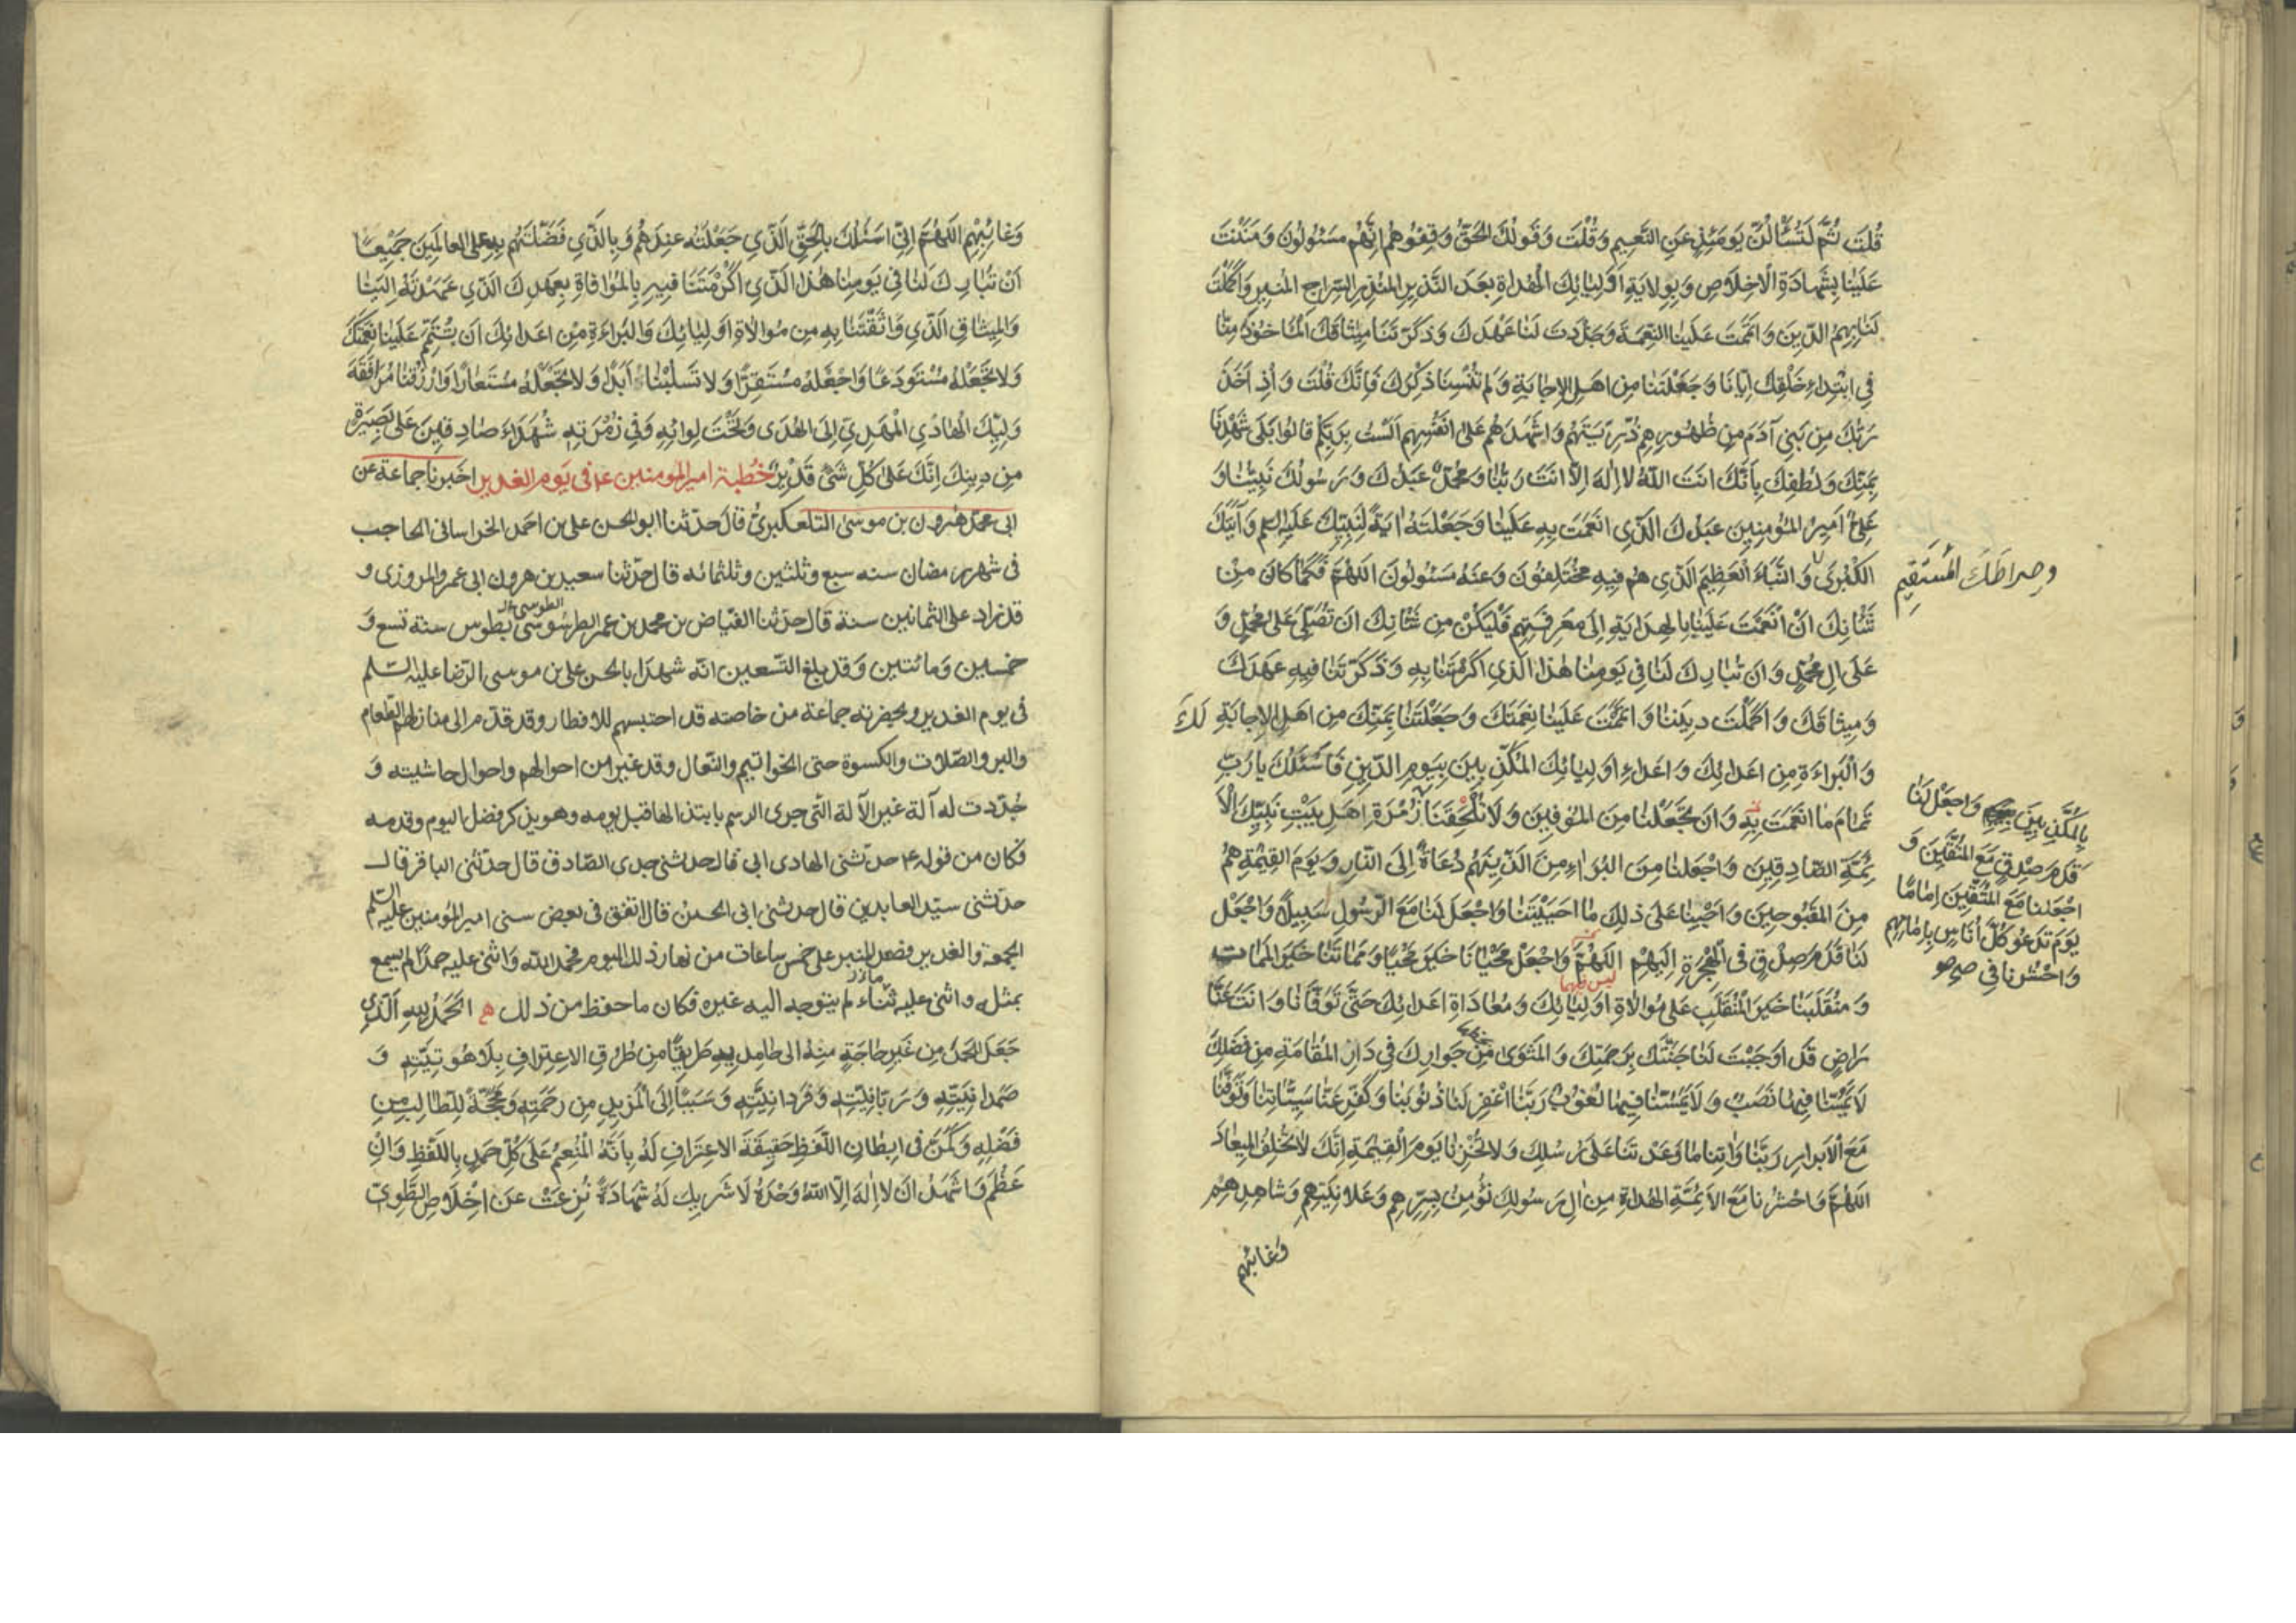 قُلتَ ثُمَّ لَتُسْأَلُنَّ يَومَئِذٍ عَنِ النَّعِيمِ وَقُلْتَ وَقَولُكَ الحَقُّ وَقِفُوهُم اِنَّهُم مَسئُولُونَ وَمَنَنْتَ
عَلَينَا بِشَهادَةِ الاِخلَاصِ وَبِوِلايَةِ اَولِيَائِكَ الهُداةِ بَعدَ النَّذِيرِ المُنذِرِ السِّراجِ المُنيرِ وَاَكمَلْتَ
لَنا بِهِمُ الدِّينَ وَاتمَمتَ عَلَينَا النِّعمَةَ وَجَدَّدتَ لَنا عَهدَكَ وَذَكَّرتَنَا مِيثاقَكَ المَاخُوذَ مِنَّا
فِي ابْتِداءِ خَلقِكَ اِيَّانَا وَجَعَلتَنا مِن اَهلِ الاِجابَةِ وَلَم تُنْسِنَا ذِكْرَكَ فَاِنَّكَ قُلتَ وَاِذ اَخَذَ
رَبُّكَ مِن بَنِي آدَمَ مِن ظُهُورِهِم ذُرِّيَّتَهُم وَاشهَدَهُم عَلى اَنفُسِهِم اَلَستُ بِرَبِّكُم قالُوا بَلى شَهِدنَا
بِمَنِّكَ وَلُطفِكَ بِأَنَّكَ اَنتَ اللهُ لا اِلهَ اِلّا اَنتَ رَبُّنا وَمُحمَّدٌ عَبدُكَ وَرَسُولُكَ نَبِيُّنا وَ
عَلِيٌّ اَمِيرُ المُؤمِنِينَ عَبدُكَ الَّذِي انعَمتَ بِهِ عَلَينا وَجَعَلتَهُ ايَةً لِنَبِيِّكَ عَلَيهِ السلم وَآيَتَكَ
الكُبْرى وَالنَّبَاَ العَظِيمَ الَّذِي هُم فِيهِ مُختَلِفُونَ وَعَنهُ مَسئُولُونَ اللَهُمَّ فَكَمَا كانَ مِنْ
وصِراطَكَ المُستَقِيمَ
شَأنِكَ اَنْ انْعَمتَ عَلَينا بِالهِدايَةِ اِلى مَعرِفَتِهِم فَليَكُنْ مِن شَأنِكَ اَن تُصَلِّيَ عَلى مُحمَّدٍ وَ
عَلَى الِ مُحمَّدٍ وَاَن تُبارِكَ لَنا فِي يَومِنا هذَا الَّذِي اَكرَمتَنا بِهِ وَذَكَّرتَنا فِيهِ عَهدَكَ
وَمِيثاقَكَ وَاَكمَلْتَ دِينَنا وَاَتمَمْتَ عَلَينا نِعمَتَكَ وَجَعَلْتَنا بِمَنِّكَ مِن اَهلِ الاِجابَةِ لَكَ
وَالبَراءَةِ مِن اَعدائِكَ وَاَعداءِ اَولِيائِكَ المُكَذِّبِينَ بِيَومِ الدِّينِ فَاَسئَلُكَ يا رَبِّ
تَمامَ ما انعَمتَ بِهِ وَاَن تَجعَلَنا مِنَ المُوفِينَ وَلا تُلحِقَنَا زُمْرَةِ اَهلِ بَيتِ نَبِيِّكَ الاَ
بِالمُكَذِّبِينَ وَاجعَل لَنا
قَدَمَ صِدقٍ مَعَ المُتَّقِينَ وَ
اجعَلنا مَعَ المُتَّقِينَ اِماماً
يَومَ تَدعُو كُلَّ اُناسٍ بِاِمامِهِم
وَاحشُرنا في صح
ئِمَّةِ الصّادِقِينَ وَاجعَلنا مِنَ البُرَاءِ مِنَ الَّذِينَ هُم دُعاةٌ اِلَى النّارِ وَيَومَ القِيمَةِ هُم
مِنَ المَقبُوحِينَ وَاَحْيِنا عَلَى ذلِكَ ما اَحيَيتَنا وَاجعَلْ لَنا مَعَ الرَّسُولِ سَبِيلًا وَاجعَلْ
لَنا قَدَمَ صِدْقٍ فِى الهِجرَةِ اِلَيهِم اللهُمَّ وَاجعَلْ مَحْيانَا خَيرَ مَحْيا وَمَماتَنا خَيرَ المَماتِ
وَمُنقَلَبَنا خَيرَ المُنقَلَبِ عَلى مُوالاةِ اَولِيائِكَ وَمُعاداةِ اَعدائِكَ حَتّى تَوَفّانا وَاَنتَ عَنّا
رَاضٍ قَد اَوجَبتَ لَنا جَنَّتَكَ بِرَحمَتِكَ وَالمَثوى مِن جَوارِكَ فِي دَارِ المُقامَةِ مِن فَضلِكَ
لا يَمَسُّنا فِيها نَصَبٌ وَلا يَمَسُّنا فِيها لُغُوبٌ رَبَّنا اغفِر لَنا ذُنُوبَنا وَكَفِّر عَنّا سَيِّئاتِنا وَتَوَفَّنا
مَعَ الاَبرارِ رَبَّنا وَاتِنا ما وَعَدتَنا عَلى رُسُلِكَ وَلا تُخزِنا يَومَ القِيمَةِ اِنَّكَ لا تُخلِفُ المِيعادَ
اللهُمَّ وَاحشُرنا مَعَ الاَئِمَّةِ الهُداةِ مِن الِ رَسُولِكَ نُؤمِنُ بِسِرِّهِم وَعَلانِيَتِهِم وَشاهِدِهِم
وَغائِبِهِم
وَغائِبِهِم اللهُمَّ اِنّي اَسئَلُكَ بِالحَقِّ الَّذِي جَعَلتَهُ عِندَهُم وَبِالَّذِي فَضَّلتَهُم بِهِ عَلى العالَمِينَ جَمِيعًا
اَنْ تُبارِكَ لَنا فِي يَومِنا هذا الَّذِي اَكْرَمْتَنَا فِيهِ بِالمُوافاةِ بِعَهدِكَ الَّذِي عَهِدتَهُ اِلَينا
وَالمِيثاقِ الَّذِي وَاثَقْتَنا بِهِ مِن مُوالاةِ اَولِيائِكَ وَالبَراءَةِ مِن اَعدائِكَ اَن تُتِمَّ عَلَينا نِعمَتَكَ
وَلا تَجْعَلهُ مُسْتَودَعًا وَاجعَلهُ مُستَقِرًّا وَلا تَسلُبْناهُ اَبَدًا وَلا تَجْعَلْهُ مُستَعارًا وَارْزُقنا مُرافَقَةَ
وَلِيِّكَ الهادِي المَهدِيِّ اِلَى الهُدَى وَتَحتَ لِوائِهِ وَفِي زُمرَتِهِ شُهَداءَ صادِقِينَ عَلى بَصِيرَةٍ
مِن دِينِكَ اِنَّكَ عَلى كُلِّ شَئٍ قَدِيرٌ خُطبة امير المومنين ع فى يَوم الغدير اخبرنا جماعة عن
ابى محمّد هرون بن موسى التلعكبريّ قالَ حدّثنا ابو الحسن على بن احمد الخراسانى الحاجب
فى شهر رمضان سنه سبع وثلثين وثلثمائه قال حدّثنا سعيد بن هرون ابى عمر والمروزى و
قد زاد على الثمانين سنة قال حدّثنا الفيّاض بن محمد بن عمر الطرسُوسى بطوس سنة تسع وَ
الطوسى
خمسين وَمائتين وَقد بلغ التّسعين انّه شهد ابا الحسن على بن موسى الرّضا عليه السّلم
فى يوم الغدير وبحضرته جماعة من خاصته قد احتبسهم للافطار وقد قدّم الى منازلهم الطّعام
والبر والصّلات والكسوة حتى الخواتيم والنّعال وقد غير من احوالهم واحوال حاشيته وَ
جُدّدت له آلة غير الآلة الّتى جرى الرسم بابتذالها قبل يومه وهو يذكر فضل اليوم وقدمه
فكان من قوله ع حدّثنى الهادى ابى قال حدثنى جدى الصّادق قال حدّثنى الباقر قال
حدّثنى سيّد العابدين قال حدثنى ابى الحسين قال اتفق فى بعض سنى امير المؤمنين عليه السّلم
الجمعة والغدير فصعد المنبر على خمس ساعات من نهار ذلك اليوم فحمد اللّه وَاثنى عليه حمدًا لم يسمع
بمثله واثنى عليه ثناء لم يتوجه اليه غيره فكان ما حفظ من ذلك الحَمدُ لِلّهِ الَّذي
جَعَلَ الحَمدَ مِن غَيرِ حاجَةٍ مِنهُ الى حامِدِيهِ طَرِيقًا مِن طُرُقِ الاِعتِرافِ بِلاهُوتِيَّتِهِ وَ
صَمَدانِيَّتِهِ وَرَبّانِيَّتِهِ وَفَردانِيَّتِهِ وَسَبَبًا اِلَى المَزِيدِ مِن رَحمَتِهِ وَمَحَجَّةً لِلطّالِبِ مِن
فَضْلِهِ وَكَمَّنَ فى اِبطانِ اللَّفظِ حَقِيقَةَ الاِعتِرَافِ لَهُ بِاَنَّهُ المُنعِمُ عَلى كُلِّ حَمدٍ بِاللَّفظِ وَاِنْ
عَظُمَ وَاَشهَدُ اَن لا اِلهَ اِلّا اللهُ وَحْدَهُ لا شَرِيكَ لَهُ شَهادَةً نُزِعَتْ عَن اِخْلَاصِ الطَّوِيِّ